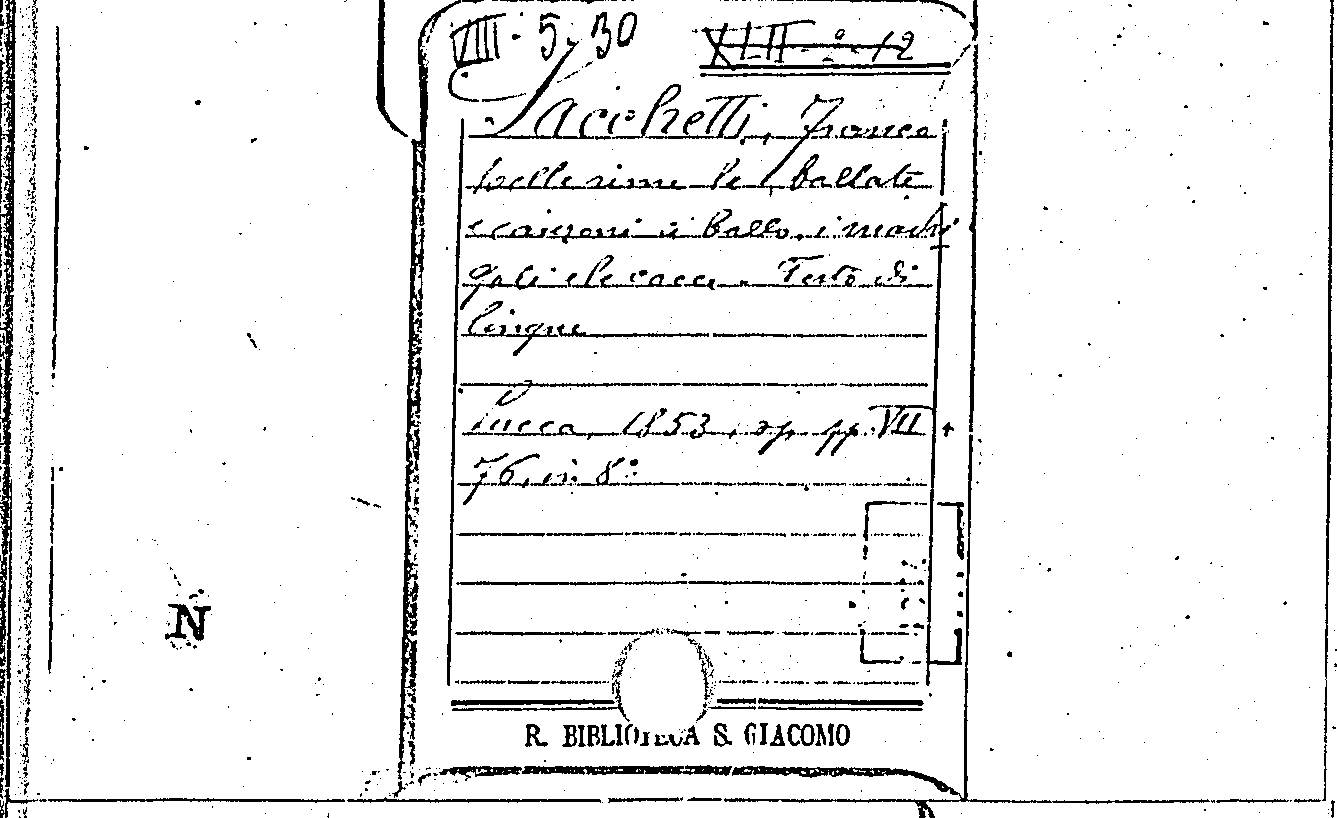 VIII. 5, 30 XLII. 2. 12
Sacchetti, Franco
Delle rime le ballate
e canzoni a ballo, i madri
gali e le cacce. Testo di
lingua
Lucca, 1853, pp. VII +
76, in 8°
N
R. BIBLIOTECA S. GIACOMO